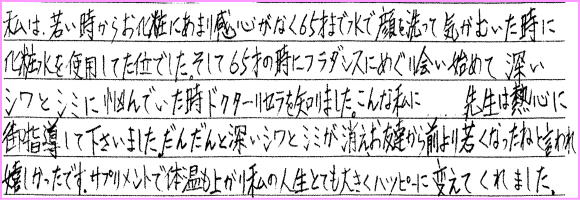 私は、若い時からお化粧にあまり感心がなく65才まで水で顔を洗って気がむいた時に
化粧水を使用してた位でした。そして65才の時にフラダンスにめぐり会い始めて深い
シワとシミに悩んでいた時ドクターリセラを知りました。こんな私に 先生は熱心に
御指導して下さいました。だんだんと深いシワとシミが消えお友達から前より若くなったねと言われ
嬉しかったです。サプリメントで体温も上がり私の人生とても大きくハッピーに変えてくれました。